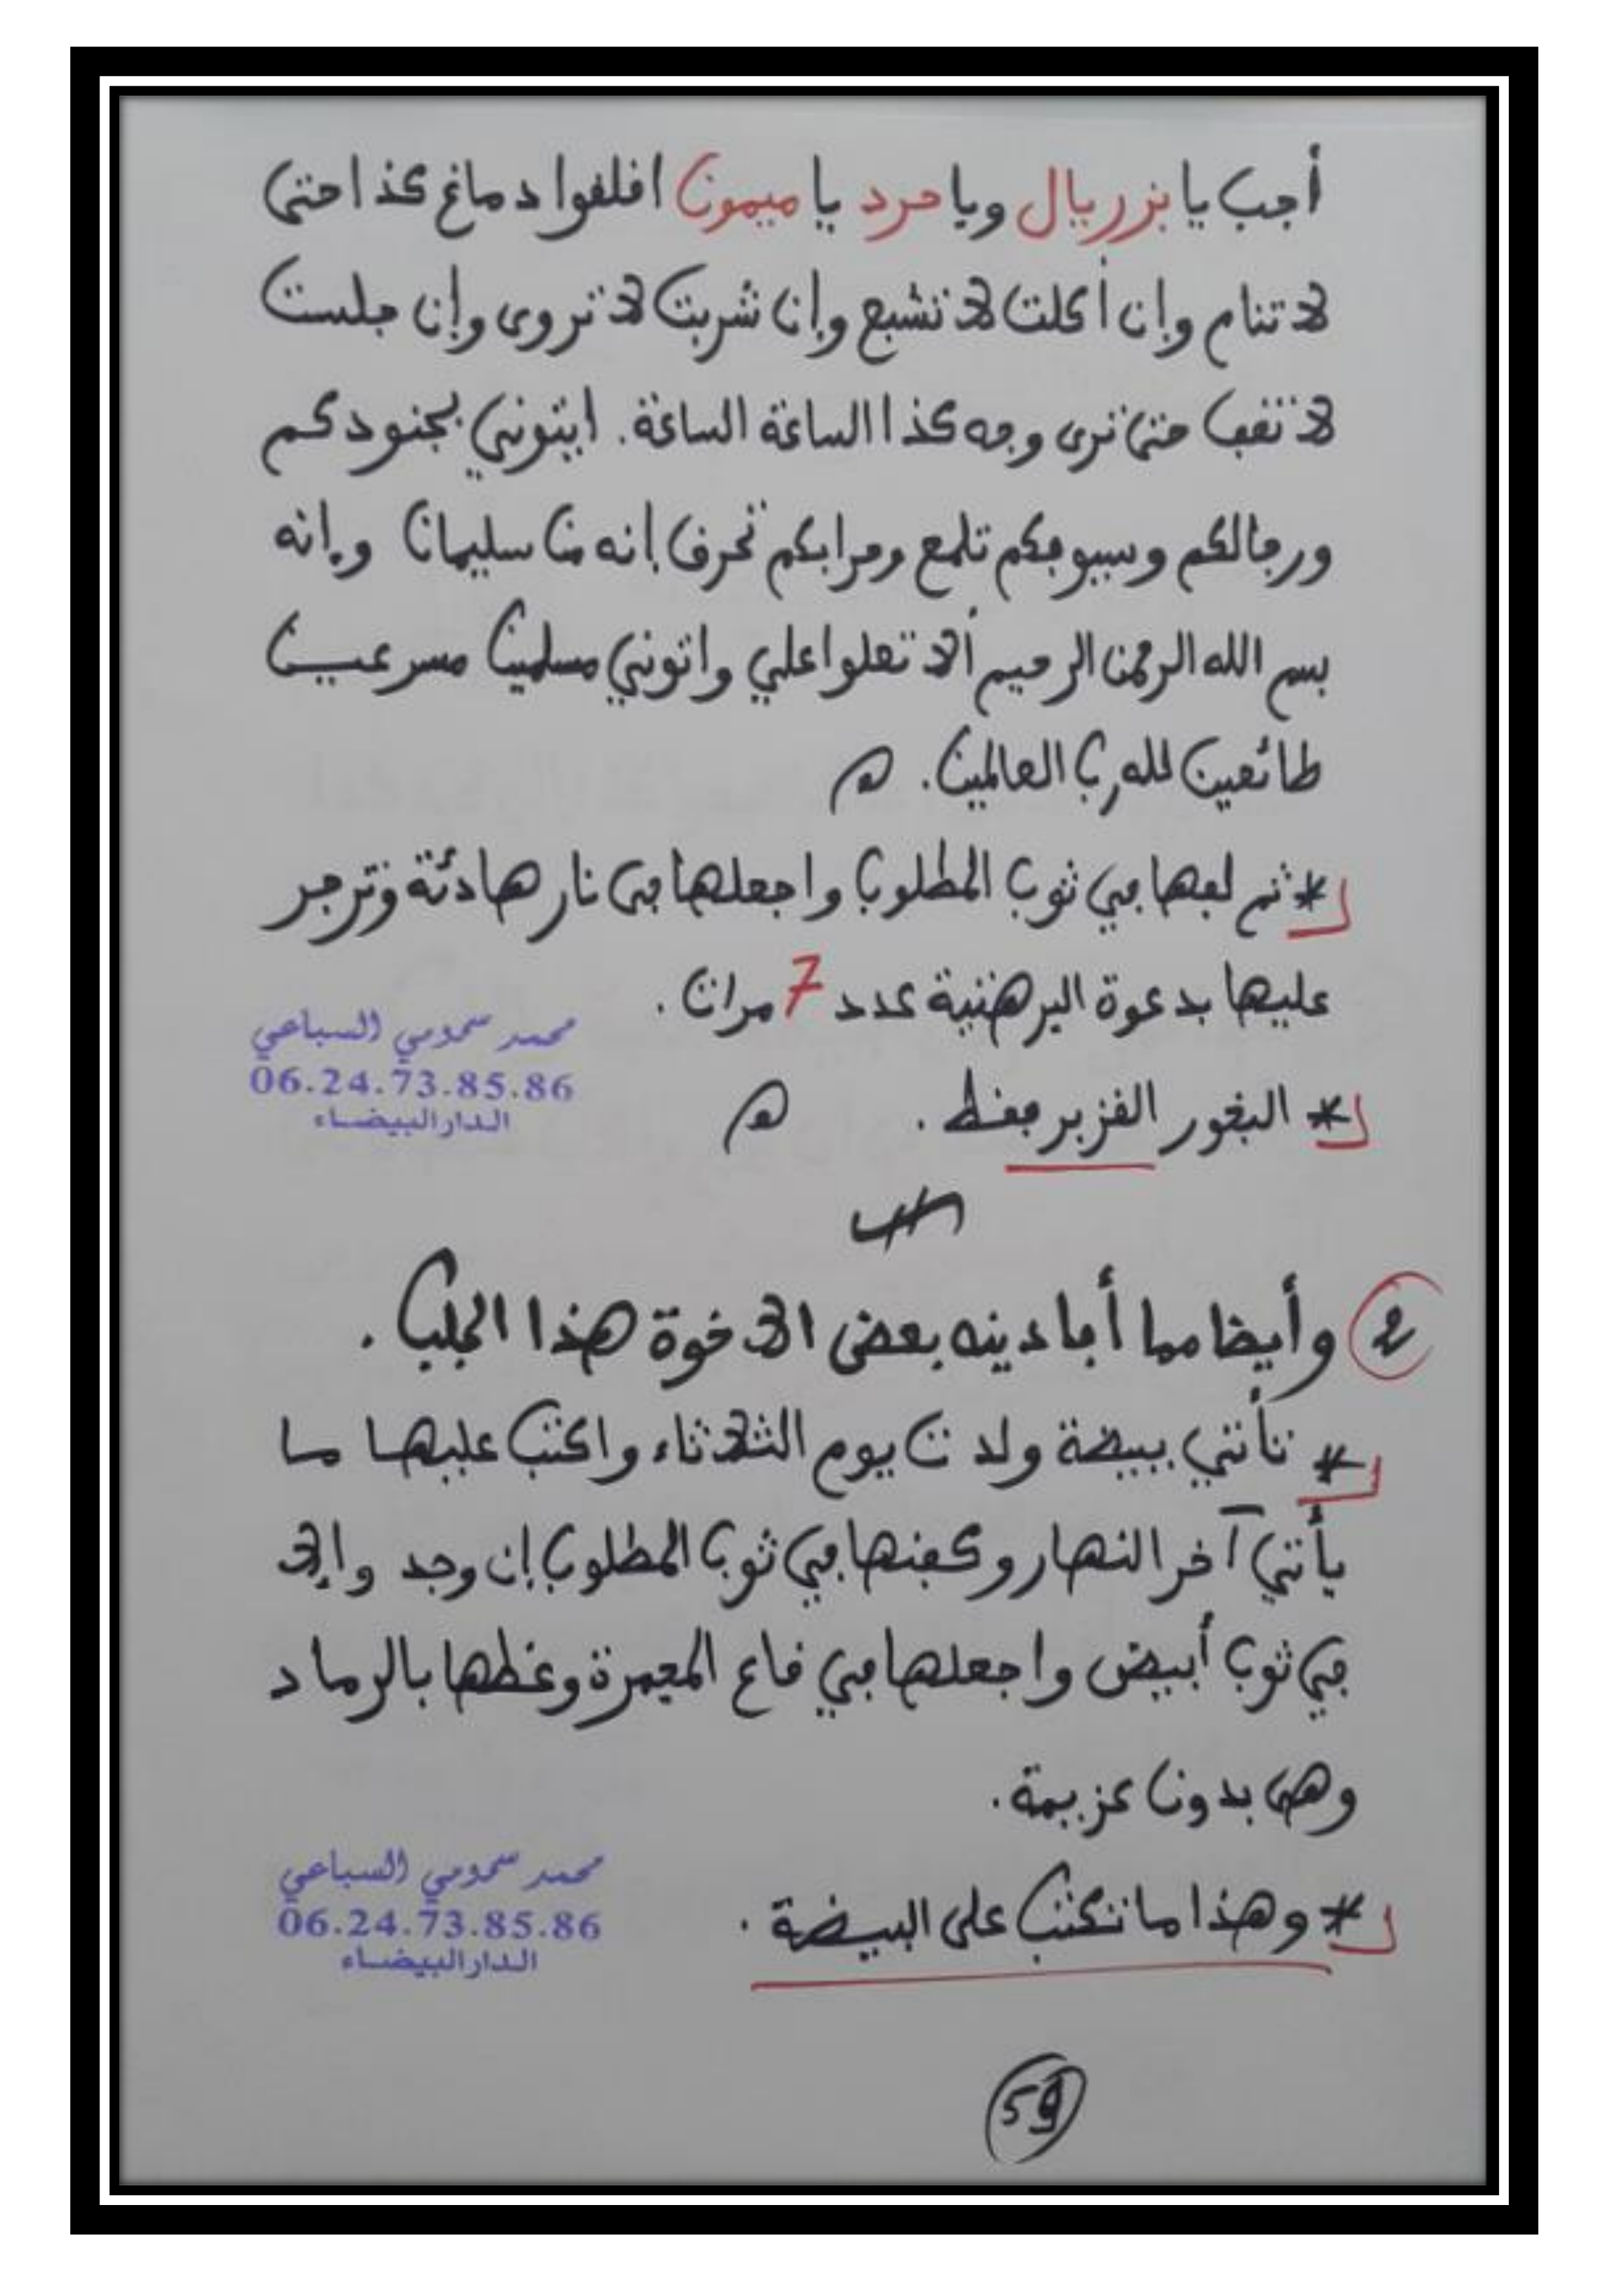 أجب يا بزريال ويا حرد يا ميمون افلفوا دماغ كذا حتى
لا تنام وإن أكلت لا تشبع وإن شربت لا تروى وإن جلست
لا تقف حتى ترى وجه كذا الساعة الساعة. ايتوني بجنودكم
ورجالكم وسيوفكم تلمع وحرابكم تحرق إنه من سليمان وإنه
بسم الله الرحمن الرحيم ألا تعلوا علي واتوني مسلمين مسرعين
طائعين لله رب العالمين. اهـ
* ثم لفها في ثوب المطلوب واجعلها في نار هادئة وتزجر
عليها بدعوة البرهتية عدد 7 مرات.
محمد سحومي السباعي
06.24.73.85.86
الدار البيضاء
* البخور القزبر فقط. اهـ
2 وأيضا مما أفادينه بعض الاخوة هذا الجلب.
* تأتي ببيضة ولدت يوم الثلاثاء واكتب عليها ما
يأتي آخر النهار وكفنها في ثوب المطلوب إن وجد وإلا
في ثوب أبيض واجعلها في قاع المجمرة وغطها بالرماد
وهي بدون عزيمة.
* وهذا ما تكتب على البيضة.
محمد سحومي السباعي
06.24.73.85.86
الدار البيضاء
59